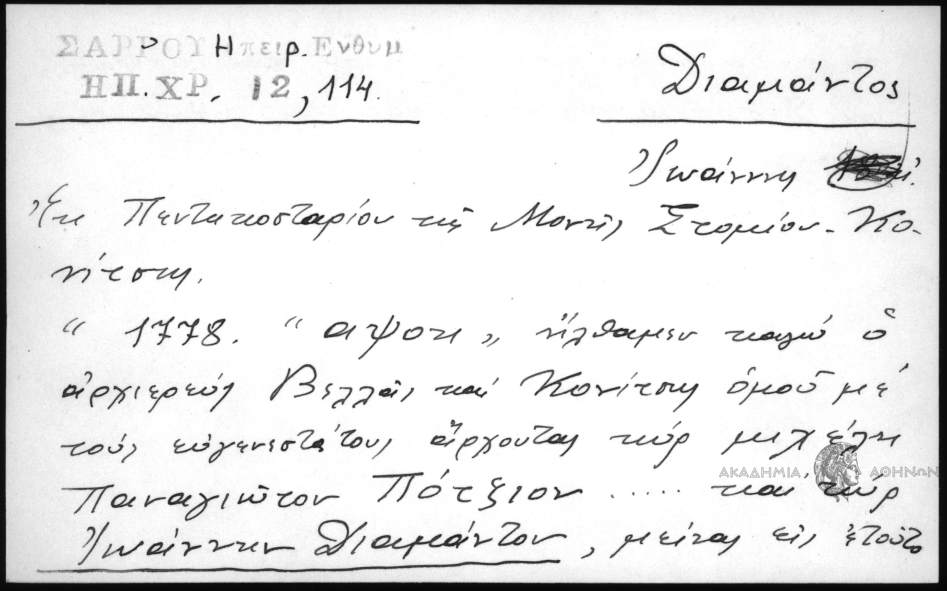 ΣΑΡΡΟΥ Ηπειρ. Ενθυμ
ΗΠ. ΧΡ. 12, 114.
Διαμάντος
Ἰωάννης
Ἐκ Πεντηκοσταρίου τῆς Μονῆς Στομίου - Κο-
νίτσης.
" 1778. " αψοη „ ἤλθαμεν καγὼ ὁ
ἀρχιερεὺς Βελλᾶς καὶ Κονίτσης ὁμοῦ μὲ
τοὺς εὐγενεστάτους ἄρχοντας κὺρ μιχέλη
ΑΚΑΔΗΜΙΑ ΑΘΗΝΩΝ
Παναγιῶτον Πότζιον ..... καὶ κὺρ
Ἰωάννην Διαμάντον, μείνας εἰς ἐτοῦτο